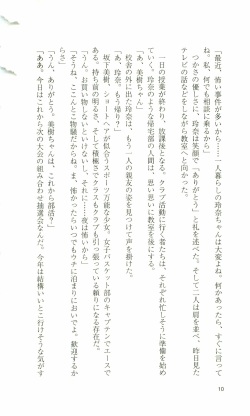 「最近、怖い事件が多いから……一人暮らしの玲奈ちゃんは大変よね。何かあったら、すぐに言って
ね。私、何でも相談に乗るから」
つかさの優しさに、玲奈は笑顔で「ありがとう」と礼を述べた。そして二人は肩を並べ、昨日見た
テレビの話などをしながら教室へと向かった。
一日の授業が終わり、放課後となる。クラブ活動に行く者たちは、それぞれ忙しそうに準備を始め
ていく。玲奈のような帰宅部の人間は、思い思いに教室を後にする。
校舎の外に出た玲奈は、もう一人の親友の姿を見つけて声を掛けた。
「あ、美樹ちゃん」
「あ、玲奈。もう帰り?」
坂下美樹。ショートヘアが似合うスポーツ万能な少女。女子バスケット部のキャプテンでエースで
ある。持ち前の明るさ、そして積極さでクラスもクラブも引っ張っている頼りになる存在だ。
「うん。お買い物しないといけないし。それに……夜は怖いから」
「そうね、ここんとこ物騒だからね。ま、怖かったらいつでもウチに泊まりにおいでよ。歓迎するか
らさ」
「うん、ありがとう。美樹ちゃんは、これから部活?」
「ああ、今日はこれから次の大会の組み合わせ抽選会なんだ。今年は結構いいとこ行けそうな気がす
10